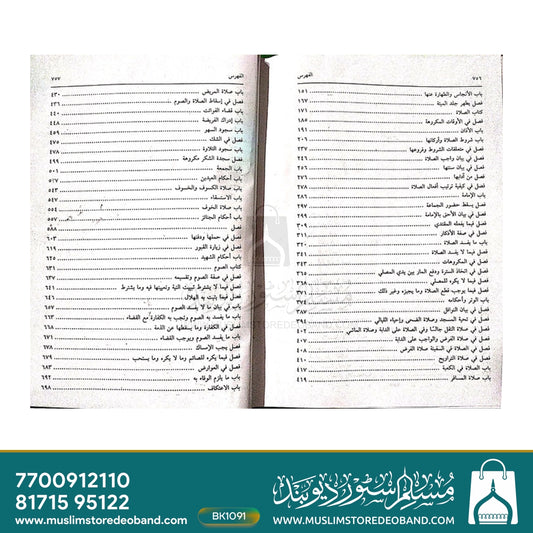 ٧٥٦ الفهرس
باب الأنجاس والطهارة عنها ١٥١
فصل يطهر جلد الميتة ١٦٧
كتاب الصلاة ١٧١
فصل في الأوقات المكروهة ١٨٥
باب الأذان ١٩١
باب شروط الصلاة وأركانها
فصل في متعلقات الشروط وفروعها
فصل في بيان واجب الصلاة
فصل في بيان سننها
فصل من آدابها
فصل في كيفية ترتيب أفعال الصلاة
باب الإمامة
فصل يسقط حضور الجماعة
فصل في بيان الأحق بالإمامة
فصل فيما يفعله المقتدي
فصل في صفة الأذكار
باب ما يفسد الصلاة
فصل فيما لا يفسد الصلاة ٣٤١
فصل في المكروهات
فصل في اتخاذ السترة ودفع المار بين يدي المصلي ٣٦٥
فصل فيما لا يكره للمصلي
فصل فيما يوجب قطع الصلاة وما يجيزه وغير ذلك ٣٧١
باب الوتر وأحكامه
فصل في بيان النوافل
فصل في تحية المسجد وصلاة الضحى وإحياء الليالي
فصل في صلاة النفل جالسًا وفي الصلاة على الدابة وصلاة الماشي
فصل في صلاة الفرض والواجب على الدابة ٤٠٧
فصل في الصلاة في السفينة
فصل في صلاة التراويح
باب الصلاة في الكعبة
باب صلاة المسافر ٤١٩
الفهرس ٧٥٧
باب صلاة المريض ٤٣٠
فصل في إسقاط الصلاة والصوم ٤٣٦
باب قضاء الفوائت
باب إدراك الفريضة
باب سجود السهو ٤٥٩
فصل في الشك ٤٧٥
باب سجود التلاوة ٤٧٨
فصل سجدة الشكر مكروهة ٤٩٩
باب الجمعة
باب أحكام العيدين ٥٢٧
باب صلاة الكسوف والخسوف
باب الاستسقاء ٥٤٧
باب صلاة الخوف
باب أحكام الجنائز ٥٥٧
فصل ٥٨٨
فصل في حملها ودفنها ٦٠٣
فصل في زيارة القبور
باب أحكام الشهيد
كتاب الصوم ٦٣١
فصل في صفة الصوم وتقسيمه
فصل فيما لا يشترط تبييت النية وتعيينها فيه وما يشترط
فصل فيما يثبت به الهلال
باب في بيان ما لا يفسد الصوم
باب ما يفسد الصوم وتجب به الكفارة مع القضاء
فصل في الكفارة وما يسقطها عن الذمة
باب ما يفسد الصوم ويوجب القضاء
فصل يجب الإمساك
فصل فيما يكره للصائم وما لا يكره وما يستحب ٦٧٩
فصل في العوارض ٦٨٣
باب ما يلزم الوفاء به
باب الاعتكاف ٦٩٨
MUSLIMSTOREDEOBAND.COM
7700912110
81715 95122
www.muslimstoredeoband.com
BK1091
مسلم سٹور دیوبند
WWW.MUSLIMSTOREDEOBAND.COM